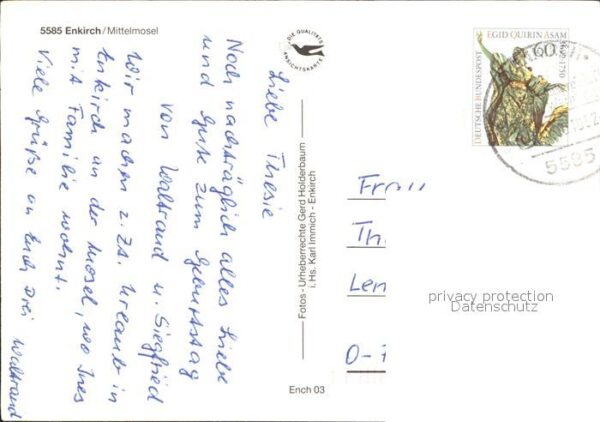 5585 Enkirch/Mittelmosel
Liebe Thesie
Noch nachträglich alles Liebe
und Gute zum Geburtstag
von Waltraud u. Siegfried
Wir machen z. Zt. Urlaub in
Enkirch an der Mosel, wo Ines
mit Familie wohnt.
Viele Grüße an Euch Drei
Waltraud
DIE QUALITÄTS
ANSICHTSKARTE
Fotos - Urheberrechte Gerd Holderbaum
i. Hs. Karl Immich - Enkirch
Ench 03
EGID QUIRIN ASAM
1692-1750
60
DEUTSCHE BUNDESPOST
5585
Frau
Th
Len
O-
privacy protection
Datenschutz